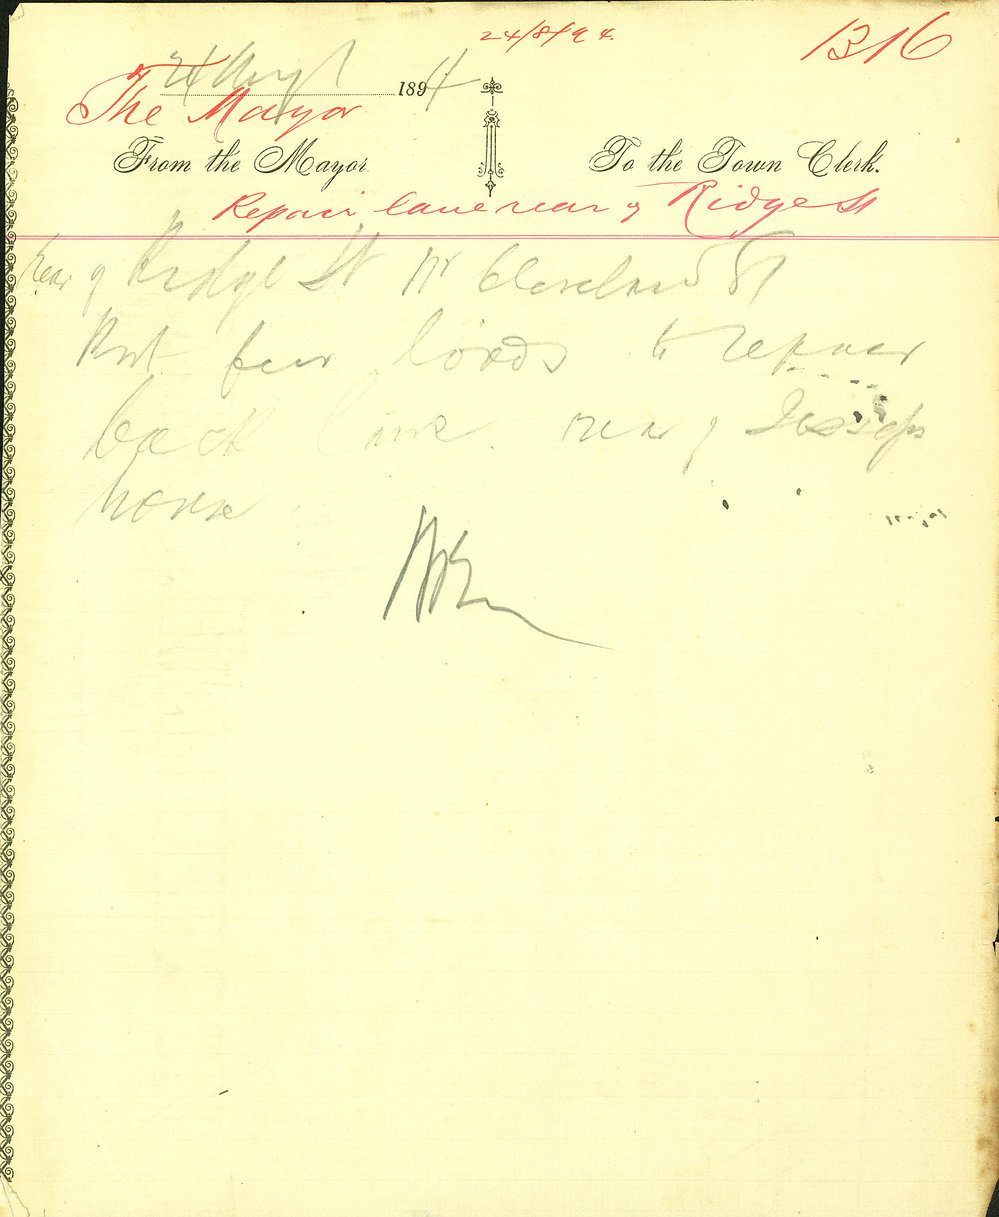 24/8/94.
1316
24 Augt 1894
The Mayor
From the Mayor. To the Town Clerk.
Repair lane rear of Ridge St
Rear of Ridge St nr Cleveland St
Put few loads to repair
back lane rear of Jessops
house